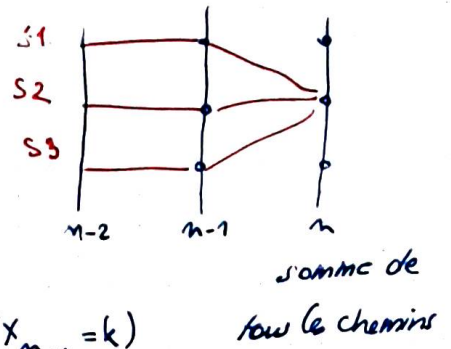 S1
S2
S3
n-2 n-1 n
somme de
tous les chemins
X = k)